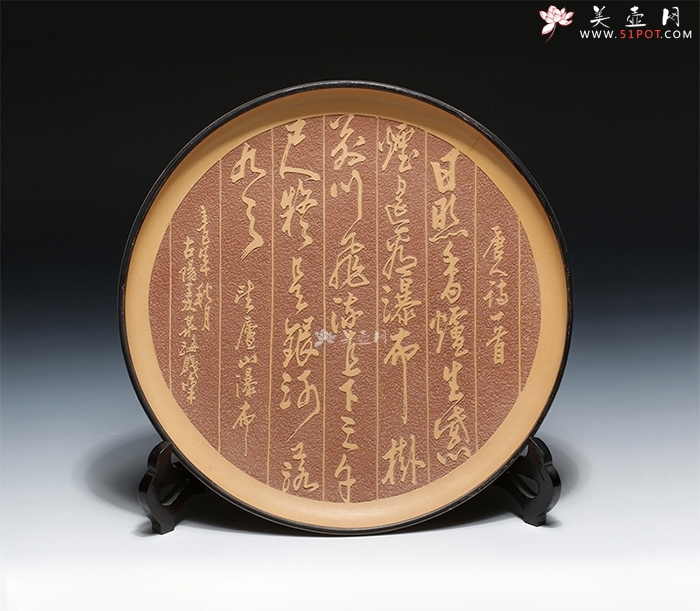 美壶网
WWW.51POT.COM
唐人诗一首
日照香爐生紫
煙遥看瀑布掛
前川飛流直下三千
尺疑是銀河落
九天 望廬山瀑布
辛巳年秋月
古陽羡
美壶网